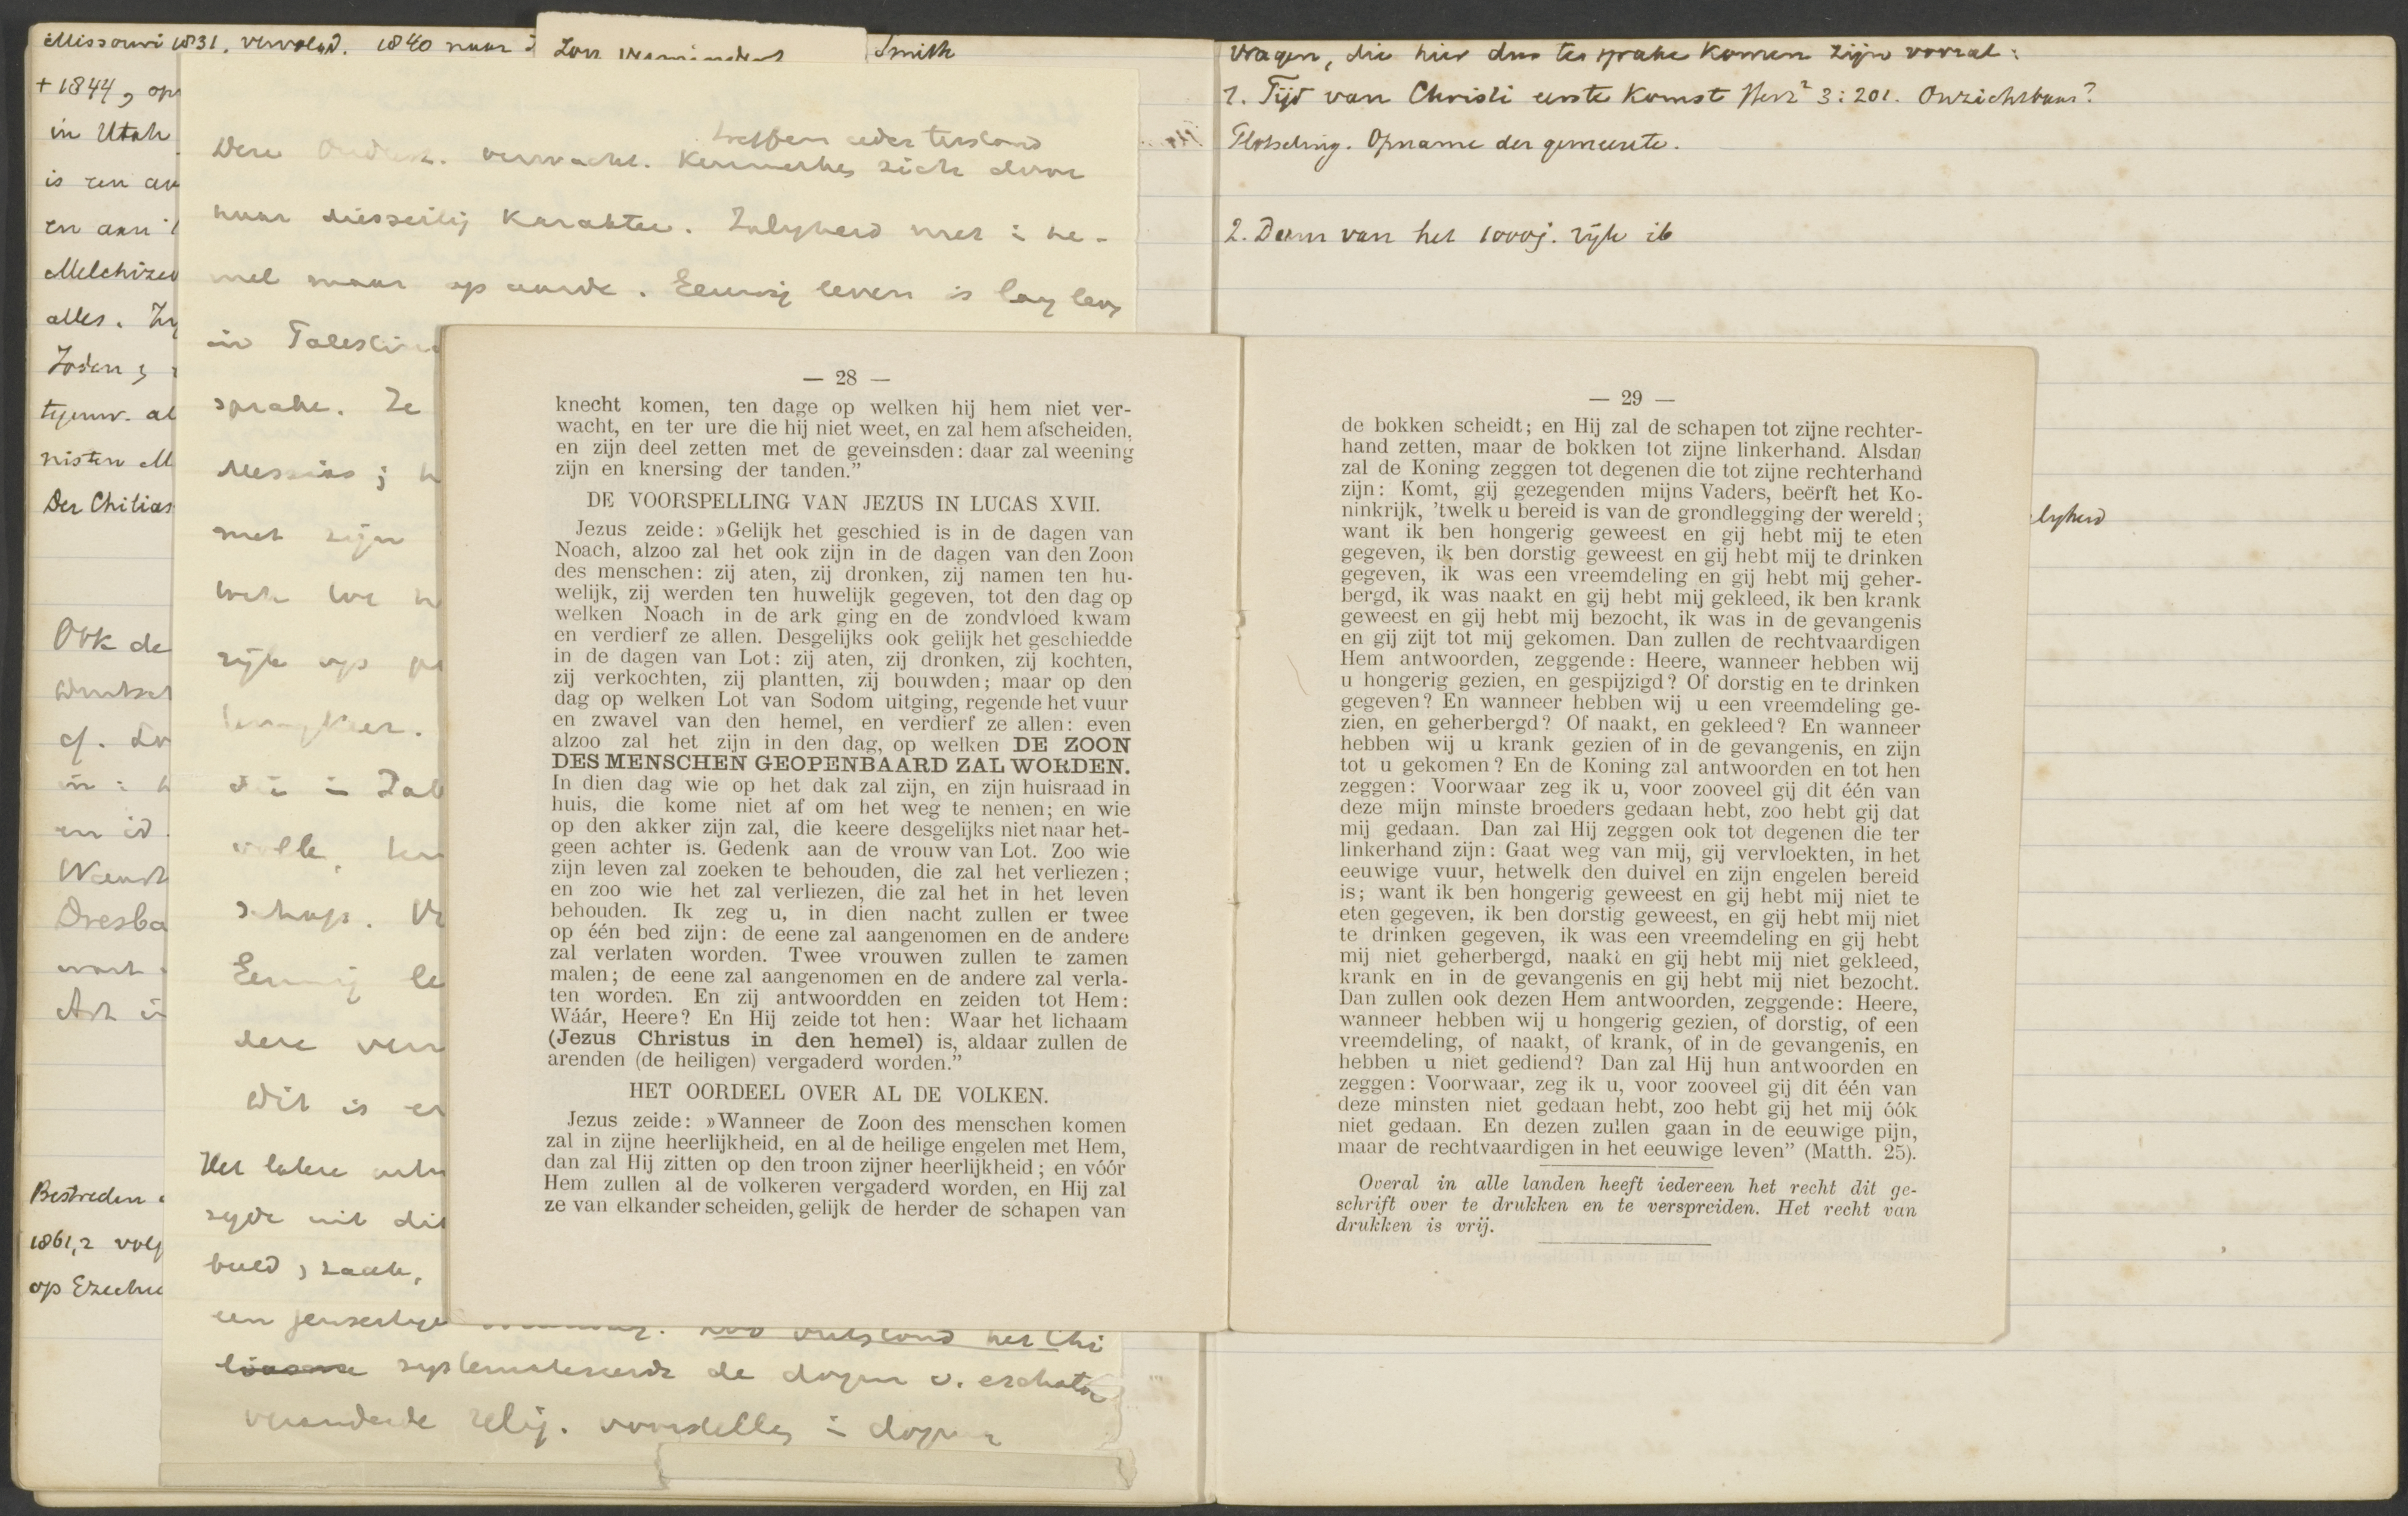 Missouri 1831, vervolgd. 1840 naar
Smith
+ 1844, op
in Utah
is een
en aan
Melchized
alles.
Joden,
Der Chilias
Ook de
cf.
en id.
Dresba
Bestreden
1861,2 volg
op Ezechi
treffen
verwacht. Kenmerken zich door
haar diesseitig Karakter. Zaligheid niet i he-
mel maar op aarde. Eeuwig leven is lang leven
in Palestina
sprake. Ze
Messias;
met zijn
rijk op
volk,
schap.
Eeuwig le
dere ver
Dit is
Het latere
zijde uit dit
beeld, zaak,
een jenseitige
Zoo ontstond het Chi
liasme systematiseerde de dogm v. eschato
veranderde relig. voorstelling i dogma
Vragen, die hier dus ter sprake komen zijn vooral:
1. Tijd van Christi eerste Komst Herz² 3:201. Onzichtbaar?
Plotseling. Opname der gemeente.
2. Duur van het 1000j. rijk ib
— 28 —
knecht komen, ten dage op welken hij hem niet ver-
wacht, en ter ure die hij niet weet, en zal hem afscheiden,
en zijn deel zetten met de geveinsden: daar zal weening
zijn en knersing der tanden.”
DE VOORSPELLING VAN JEZUS IN LUCAS XVII.
Jezus zeide: »Gelijk het geschied is in de dagen van
Noach, alzoo zal het ook zijn in de dagen van den Zoon
des menschen: zij aten, zij dronken, zij namen ten hu-
welijk, zij werden ten huwelijk gegeven, tot den dag op
welken Noach in de ark ging en de zondvloed kwam
en verdierf ze allen. Desgelijks ook gelijk het geschiedde
in de dagen van Lot: zij aten, zij dronken, zij kochten,
zij verkochten, zij plantten, zij bouwden; maar op den
dag op welken Lot van Sodom uitging, regende het vuur
en zwavel van den hemel, en verdierf ze allen: even
alzoo zal het zijn in den dag, op welken DE ZOON
DES MENSCHEN GEOPENBAARD ZAL WORDEN.
In dien dag wie op het dak zal zijn, en zijn huisraad in
huis, die kome niet af om het weg te nemen; en wie
op den akker zijn zal, die keere desgelijks niet naar het-
geen achter is. Gedenk aan de vrouw van Lot. Zoo wie
zijn leven zal zoeken te behouden, die zal het verliezen;
en zoo wie het zal verliezen, die zal het in het leven
behouden. Ik zeg u, in dien nacht zullen er twee
op één bed zijn: de eene zal aangenomen en de andere
zal verlaten worden. Twee vrouwen zullen te zamen
malen; de eene zal aangenomen en de andere zal verla-
ten worden. En zij antwoordden en zeiden tot Hem:
Wáár, Heere? En Hij zeide tot hen: Waar het lichaam
(Jezus Christus in den hemel) is, aldaar zullen de
arenden (de heiligen) vergaderd worden.”
HET OORDEEL OVER AL DE VOLKEN.
Jezus zeide: »Wanneer de Zoon des menschen komen
zal in zijne heerlijkheid, en al de heilige engelen met Hem,
dan zal Hij zitten op den troon zijner heerlijkheid; en vóór
Hem zullen al de volkeren vergaderd worden, en Hij zal
ze van elkander scheiden, gelijk de herder de schapen van
— 29 —
de bokken scheidt; en Hij zal de schapen tot zijne rechter-
hand zetten, maar de bokken tot zijne linkerhand. Alsdan
zal de Koning zeggen tot degenen die tot zijne rechterhand
zijn: Komt, gij gezegenden mijns Vaders, beërft het Ko-
ninkrijk, ’twelk u bereid is van de grondlegging der wereld;
want ik ben hongerig geweest en gij hebt mij te eten
gegeven, ik ben dorstig geweest en gij hebt mij te drinken
gegeven, ik was een vreemdeling en gij hebt mij geher-
bergd, ik was naakt en gij hebt mij gekleed, ik ben krank
geweest en gij hebt mij bezocht, ik was in de gevangenis
en gij zijt tot mij gekomen. Dan zullen de rechtvaardigen
Hem antwoorden, zeggende: Heere, wanneer hebben wij
u hongerig gezien, en gespijzigd? Of dorstig en te drinken
gegeven? En wanneer hebben wij u een vreemdeling ge-
zien, en geherbergd? Of naakt, en gekleed? En wanneer
hebben wij u krank gezien of in de gevangenis, en zijn
tot u gekomen? En de Koning zal antwoorden en tot hen
zeggen: Voorwaar zeg ik u, voor zooveel gij dit één van
deze mijn minste broeders gedaan hebt, zoo hebt gij dat
mij gedaan. Dan zal Hij zeggen ook tot degenen die ter
linkerhand zijn: Gaat weg van mij, gij vervloekten, in het
eeuwige vuur, hetwelk den duivel en zijn engelen bereid
is; want ik ben hongerig geweest en gij hebt mij niet te
eten gegeven, ik ben dorstig geweest, en gij hebt mij niet
te drinken gegeven, ik was een vreemdeling en gij hebt
mij niet geherbergd, naakt en gij hebt mij niet gekleed,
krank en in de gevangenis en gij hebt mij niet bezocht.
Dan zullen ook dezen Hem antwoorden, zeggende: Heere,
wanneer hebben wij u hongerig gezien, of dorstig, of een
vreemdeling, of naakt, of krank, of in de gevangenis, en
hebben u niet gediend? Dan zal Hij hun antwoorden en
zeggen: Voorwaar, zeg ik u, voor zooveel gij dit één van
deze minsten niet gedaan hebt, zoo hebt gij het mij óók
niet gedaan. En dezen zullen gaan in de eeuwige pijn,
maar de rechtvaardigen in het eeuwige leven” (Matth. 25).
Overal in alle landen heeft iedereen het recht dit ge-
schrift over te drukken en te verspreiden. Het recht van
drukken is vrij.